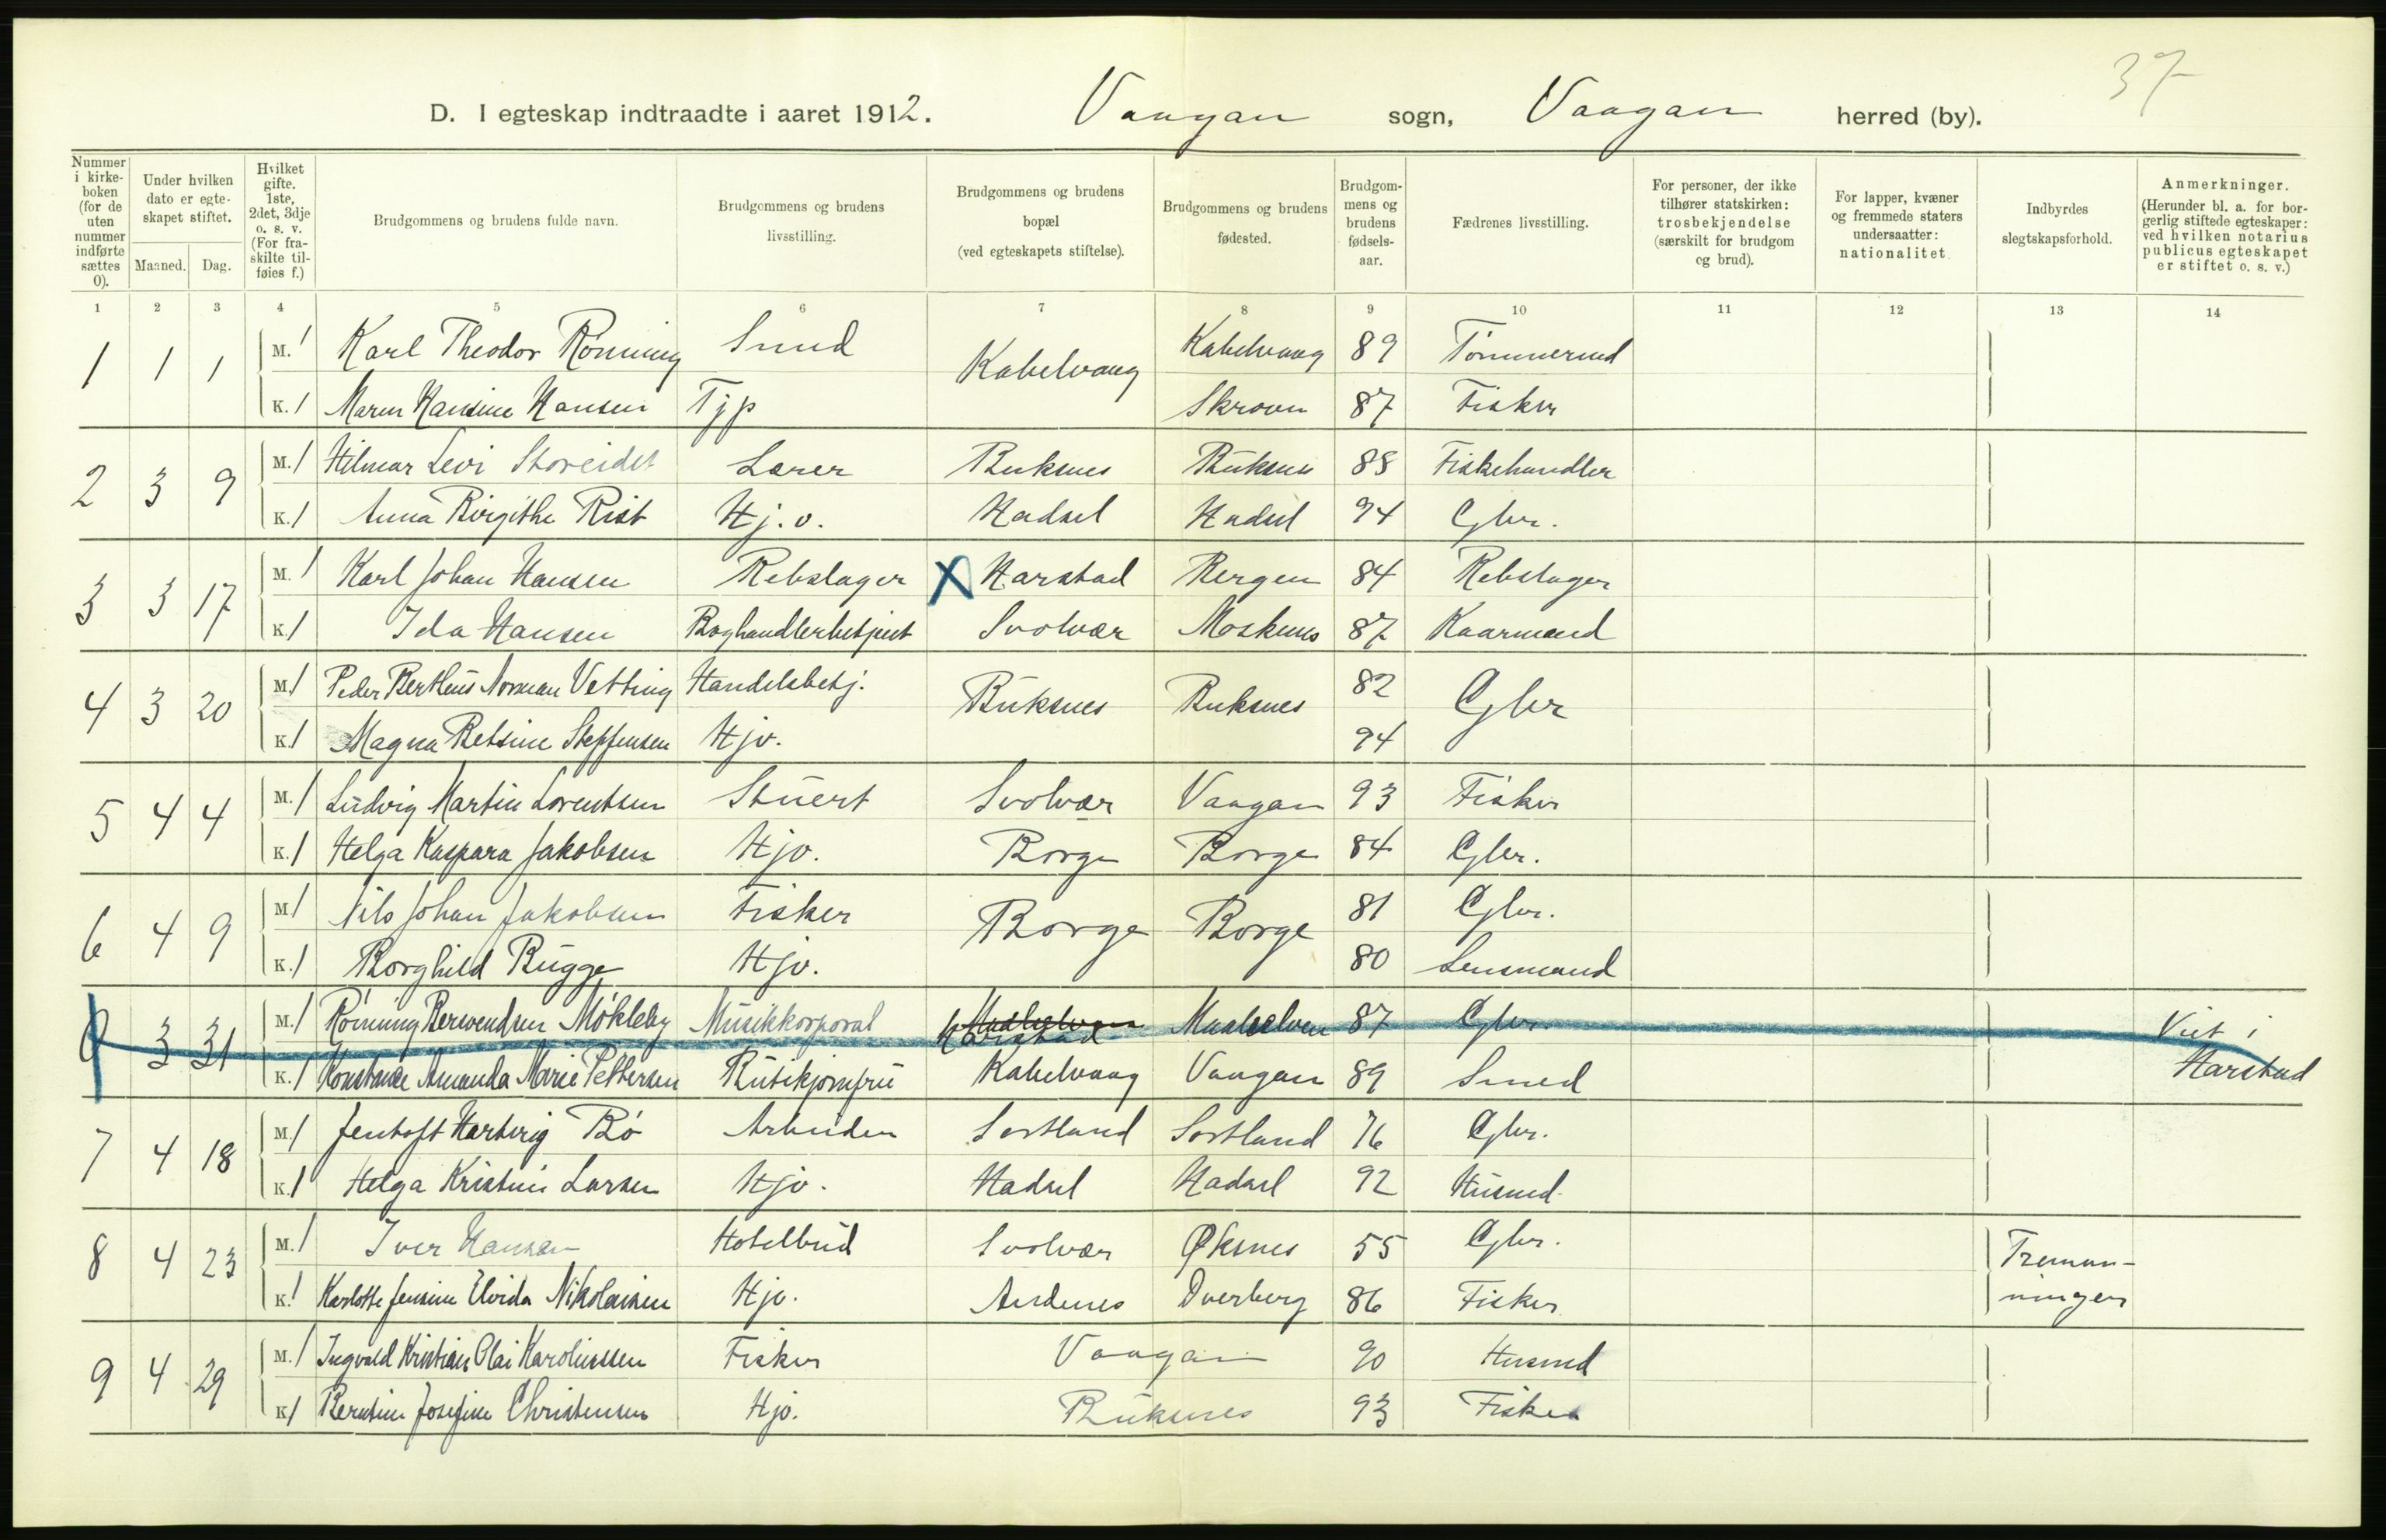 37
D. I egteskap indtraadte i aaret 1912. Vaagan sogn, Vaagan herred (by).
Nummer i kirkeboken (for de uten nummer indførte sættes 0).
Under hvilken dato er egteskapet stiftet.
Maaned. Dag.
Hvilket gifte. 1ste, 2det, 3dje o. s. v. (For fraskilte tilføies f.)
Brudgommens og brudens fulde navn.
Brudgommens og brudens livsstilling.
Brudgommens og brudens bopæl (ved egteskapets stiftelse).
Brudgommens og brudens fødested.
Brudgommens og brudens fødselsaar.
Fædrenes livsstilling.
For personer, der ikke tilhører statskirken: trosbekjendelse (særskilt for brudgom og brud).
For lapper, kvæner og fremmede staters undersaatter: nationalitet.
Indbyrdes slegtskapsforhold.
Anmerkninger. (Herunder bl. a. for borgerlig stiftede egteskaper: ved hvilken notarius publicus egteskapet er stiftet o. s. v.)
1 2 3 4 5 6 7 8 9 10 11 12 13 14
1 1 1 M. 1 Karl Theodor Rønning Smed Kabelvaag Kabelvaag 89 Tømmermd
K. 1 Maren Hansine Hansen Tjp Skroven 87 Fisker
2 3 9 M. 1 Hilmar Levi Storeidet Lærer Buksnes Buksnes 88 Fiskehandler
K. 1 Anna Birgithe Rist Hj. v. Hadsel Hadsel 94 Gbr.
3 3 17 M. 1 Karl Johan Hansen Rebslager X Harstad Bergen 84 Rebslager
K. 1 Ida Hansen Boghandlerbetjent Svolvær Moskenes 87 Kaarmand
4 3 20 M. 1 Peder Bertheus Norman Vetting Handelsbetj. Buksnes Buksnes 82 Gbr
K. 1 Magna Betsine Steffensen Hjv. 94
5 4 4 M. 1 Ludvig Martin Lorentsen Stuert Svolvær Vaagan 93 Fisker
K. 1 Helga Kaspara Jakobsen Hjv. Borge Borge 84 Gbr.
6 4 9 M. 1 Nils Johan Jakobsen Fisker Borge Borge 81 Gbr.
K. 1 Borghild Bugge Hjv. 80 Lensmand
0 3 31 M. 1 Rønning Berwendsen Møkleby Musikkorporal Maalselven Harstad Maalselven 87 Gbr. Viet i
K. 1 Konstanse Amanda Marie Pettersen Butikjomfru Kabelvaag Vaagan 89 Smed Harstad
7 4 18 M. 1 Jentoft Hartvig Bø Arbeider Sortland Sortland 76 Gbr.
K. 1 Helga Kristine Larsen Hjv. Hadsel Hadsel 92 Husmd.
8 4 23 M. 1 Iver Hansen Hotelbud Svolvær Øksnes 55 Gbr. Tremen-
K. 1 Karlotte Jensine Elvida Nikolaisen Hjv. Andenes Dverberg 86 Fisker ninger
9 4 29 M. 1 Ingvald Kristian Olai Karoliussen Fisker Vaagan 90 Husmd
K. 1 Berntine Josefine Christensen Hjv. Buksnes 93 Fisker